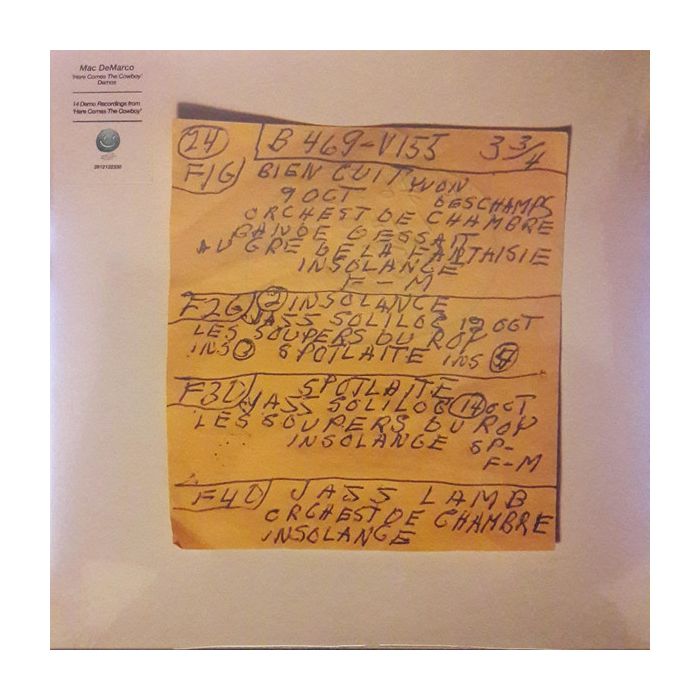 Mac DeMarco
'Here Comes The Cowboy'
Demos
14 Demo Recordings from
'Here Comes The Cowboy'
24 B 469-V155 3 3/4
F1G BIEN CUIT YVON
9 OCT DESCHAMPS
ORCHEST DE CHAMBRE
BANDE DESSAIT
AU GRE DE LA FANTAISIE
INSOLANGE
F-M
F2G 2 INSOLANCE
JASS SOLILOC 19 OCT
LES SOUPERS DU ROY
INS 3 SPOTLAITE INS
F3D SPOTLAITE
JASS SOLILOC 14 OCT
LES SOUPERS DU ROY
INSOLANGE SP-
F-M
F4D JASS LAMB
ORCHEST DE CHAMBRE
INSOLANGE